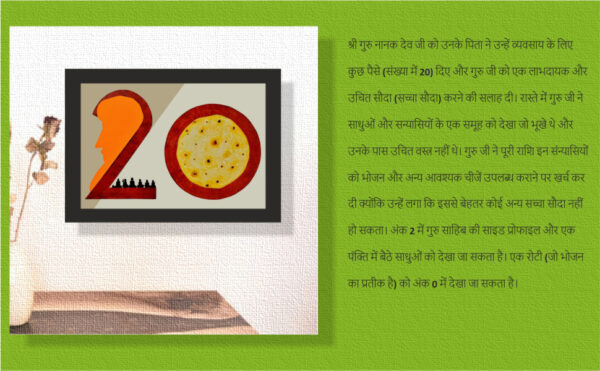 20
श्री गुरु नानक देव जी को उनके पिता ने उन्हें व्यवसाय के लिए
कुछ पैसे (संख्या में 20) दिए और गुरु जी को एक लाभदायक और
उचित सौदा (सच्चा सौदा) करने की सलाह दी। रास्ते में गुरु जी ने
साधुओं और सन्यासियों के एक समूह को देखा जो भूखे थे और
उनके पास उचित वस्त्र नहीं थे। गुरु जी ने पूरी राशि इन संन्यासियों
को भोजन और अन्य आवश्यक चीजें उपलब्ध कराने पर खर्च कर
दी क्योंकि उन्हें लगा कि इससे बेहतर कोई अन्य सच्चा सौदा नहीं
हो सकता। अंक 2 में गुरु साहिब की साइड प्रोफाइल और एक
पंक्ति में बैठे साधुओं को देखा जा सकता है। एक रोटी (जो भोजन
का प्रतीक है) को अंक 0 में देखा जा सकता है।